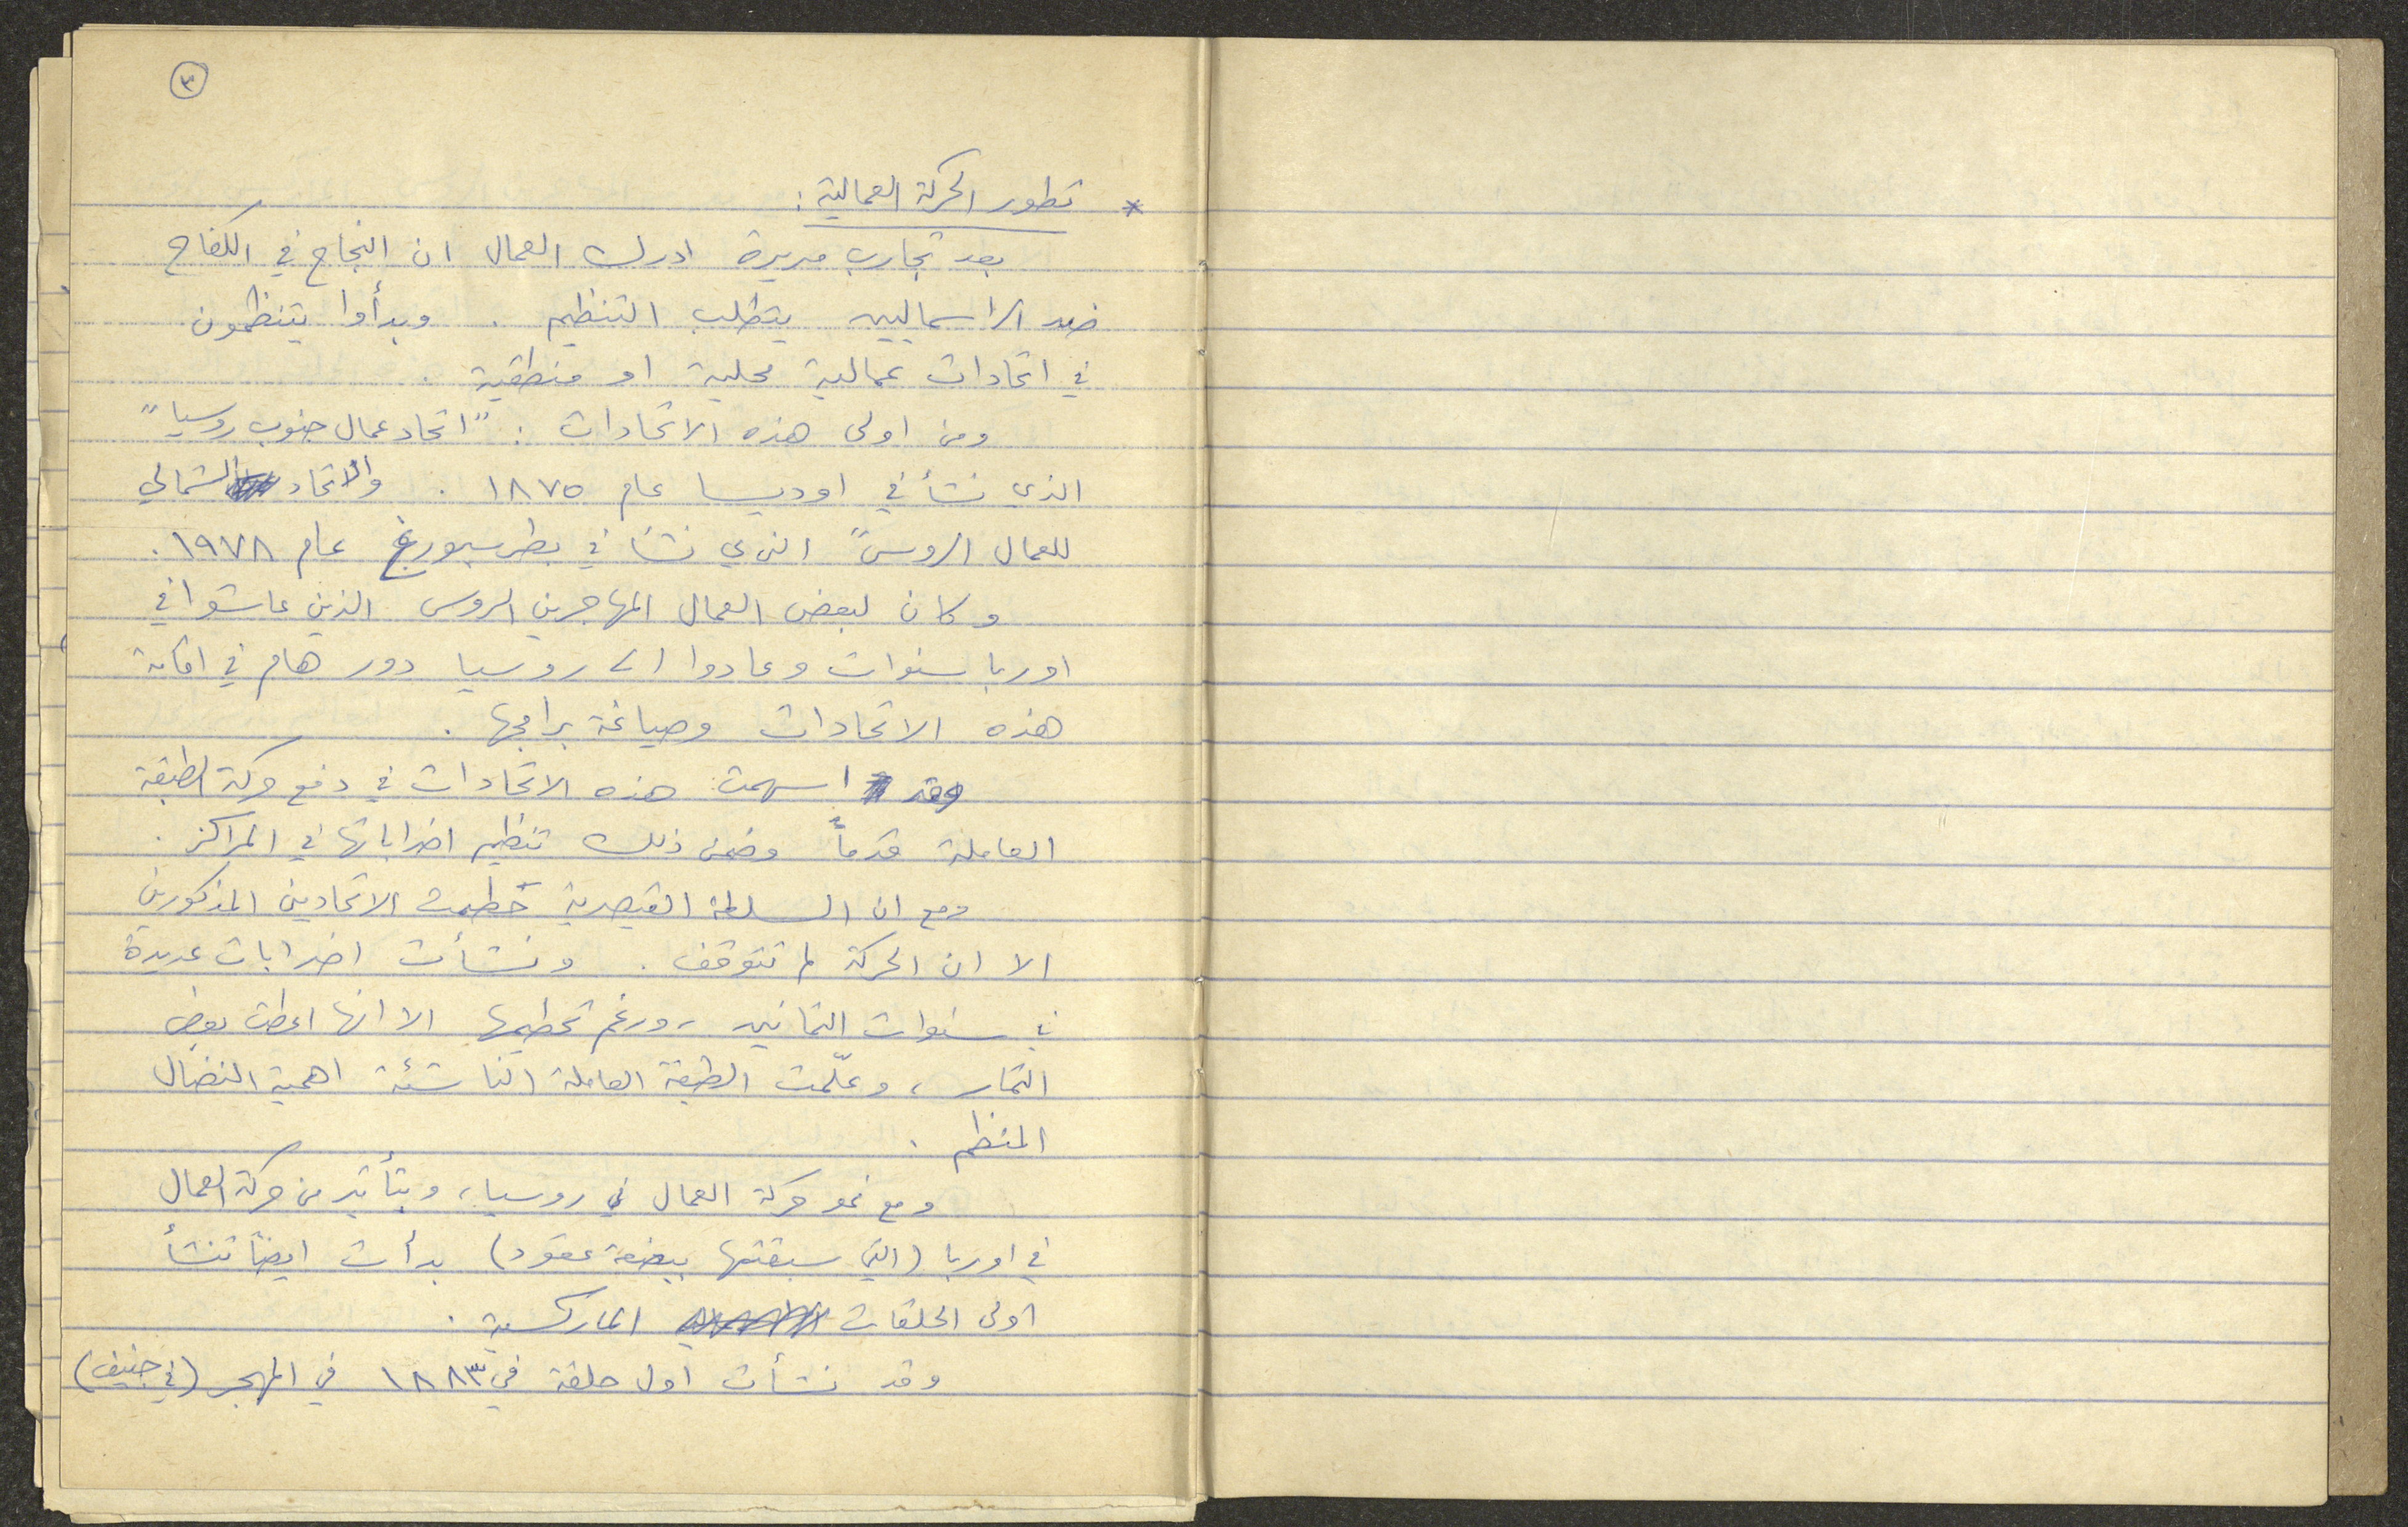 ٣
* تطور الحركة العمالية :
بعد تجارب مريرة ادرك العمال ان النجاح في الكفاح
ضد الراسماليين يتطلب التنظيم . وبدأوا يتنظمون
في اتحادات عمالية محلية او منطقية .
ومن اولى هذه الاتحادات : "اتحاد عمال جنوب روسيا"
الذي نشأ في اوديسا عام ١٨٧٥ . والاتحاد الشمالي
للعمال الروس" الذي نشأ في بطرسبورغ عام ١٩٧٨ .
وكان لبعض العمال المهاجرين الروس الذين عاشوا في
اوربا سنوات وعادوا الى روسيا دور هام في اقامة
هذه الاتحادات وصياغة برامجها .
وقد اسهمت هذه الاتحادات في دفع حركة الطبقة
العاملة قدماً وضمن ذلك تنظيم اضراباتها في المراكز .
ومع ان السلطة القيصرية حطمت الاتحادين المذكورين
الا ان الحركة لم تتوقف . ونشأت اضرابات عديدة
في سنوات الثمانين ، ورغم تحطيمها الا انها اعطت بعض
الثمار ، وعلّمت الطبقة العاملة الناشئة اهمية النضال
المنظم .
ومع نمو حركة العمال في روسيا ، وبتأثير من حركة العمال
في اوربا (التي سبقتها ببضعة عقود) بدأت ايضاً تنشأ
اولى الحلقات الماركسية .
وقد نشأت اول حلقة في ١٨٨٣ في المهجر (في جنيف)